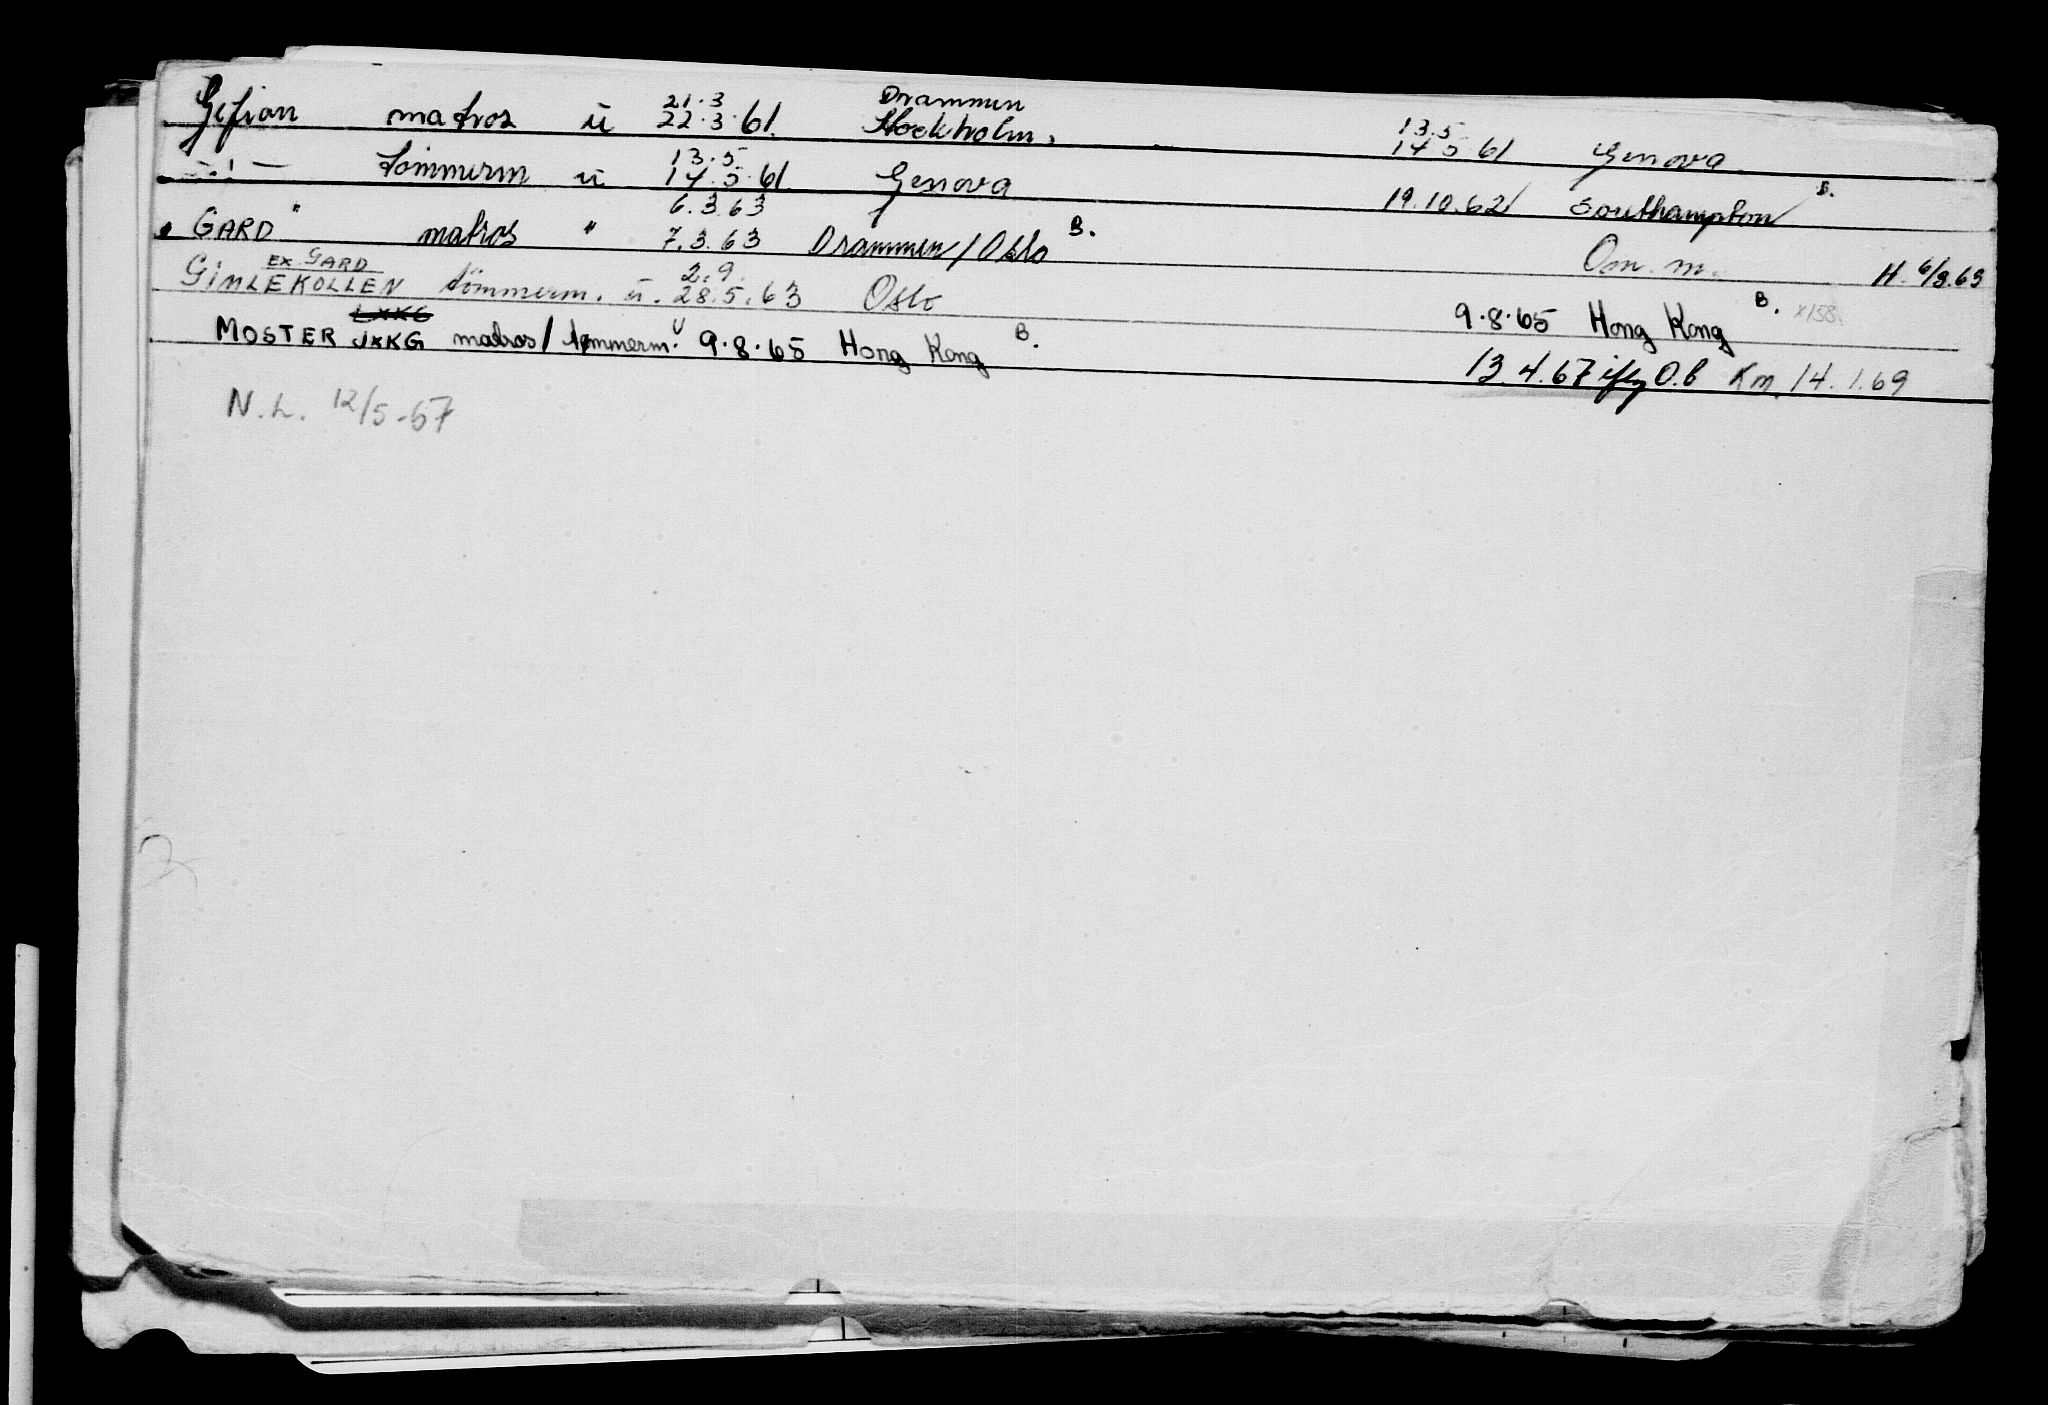 21.3 Drammen
Gefion matros ū 22.3.61. Stockholm. 13.5
14.5 61 Genova
13.5.
-:- Tømmerm ū 14.5.61. Genova 19.10.62 Southampton B.
6.3.63
GARD " matros " 7.3.63 Drammen/Oslo B. Om. m. H. 6/3.63
EX GARD 2.9.
GIMLEKOLLEN tömmerm. ū. 28.5.63 Oslo 9.8.65 Hong Kong B. x158.
LXKG
MOSTER JXKG matros/tømmerm. U 9.8.65 Hong Kong B. 13.4.67 iflg O.b Km. 14.1.69
N.L. 12/5-67